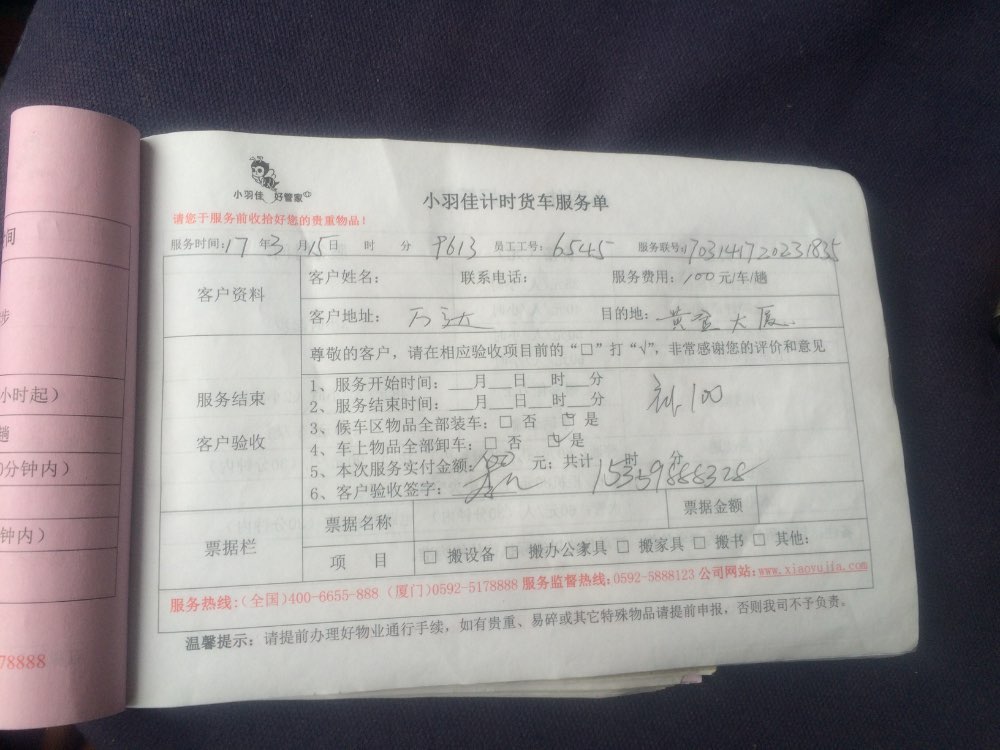 小羽佳 好管家
小羽佳计时货车服务单
请您于服务前收拾好您的贵重物品！
服务时间：17年3月15日 时 分 9613 员工工号：6545 服务联号：17031417202231835
客户资料
客户姓名： 联系电话： 服务费用：100元/车/趟
客户地址：万达 目的地：黄金大厦
服务结束
客户验收
尊敬的客户，请在相应验收项目前的“□”打“√”，非常感谢您的评价和意见
1、服务开始时间：___月___日___时___分
2、服务结束时间：___月___日___时___分
补100
3、候车区物品全部装车：□ 否 ☑ 是
4、车上物品全部卸车：□ 否 ☑ 是
5、本次服务实付金额：100元；共计 时 分
6、客户验收签字： 15359888328
票据栏
票据名称 票据金额
项 目 □ 搬设备 □ 搬办公家具 □ 搬家具 □ 搬书 □ 其他：
服务热线：（全国）400-6655-888（厦门）0592-5178888 服务监督热线：0592-5888123 公司网站：www.xiaoyujia.com
温馨提示：请提前办理好物业通行手续，如有贵重、易碎或其它特殊物品请提前申报，否则我司不予负责。
间
涉
小时起）
趟
0分钟内）
钟内）
78888